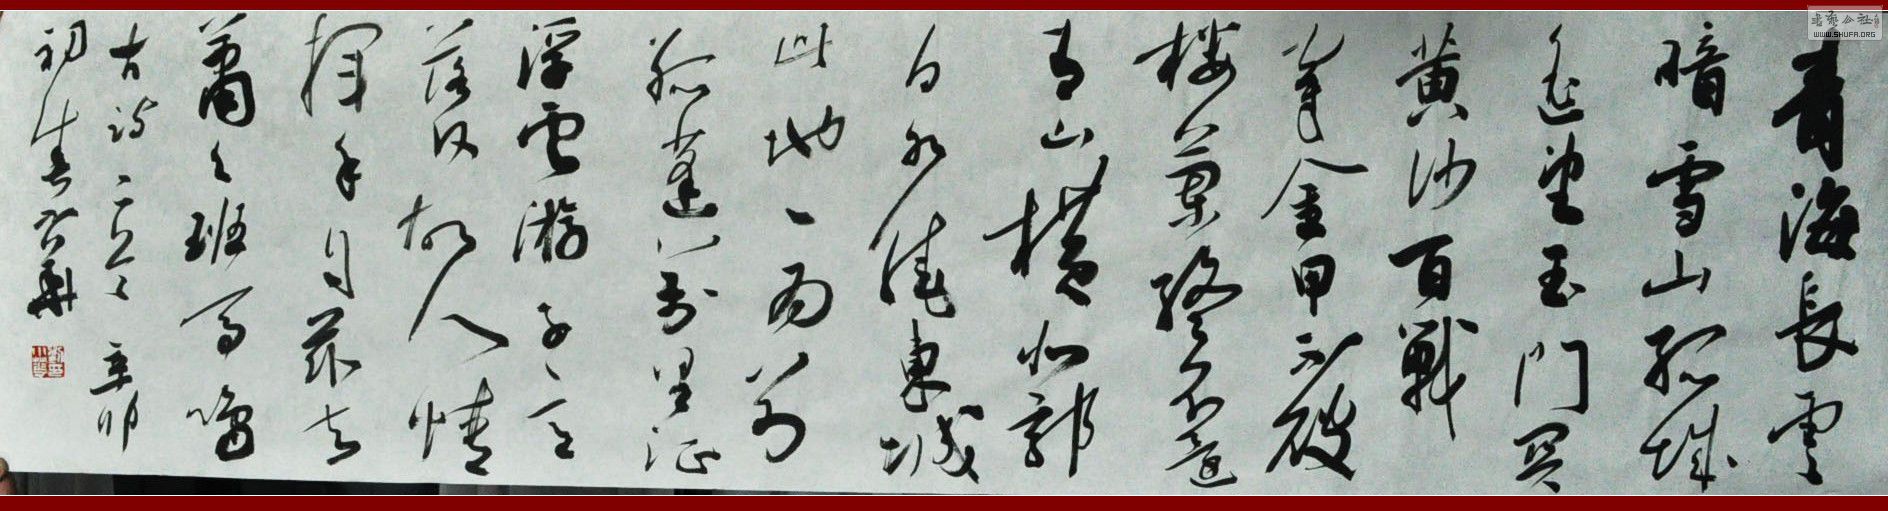 青海長雲
暗雪山孤城
遥望玉门関
黄沙百戦
穿金甲不破
楼蘭終不還
青山横北郭
白水繞東城
此地一为别
孤蓬万里征
浮雲游子意
落日故人情
揮手自茲去
蕭々班马鳴
古诗二首 辛卯
初春
书艺公社
WWW.SHUFA.ORG